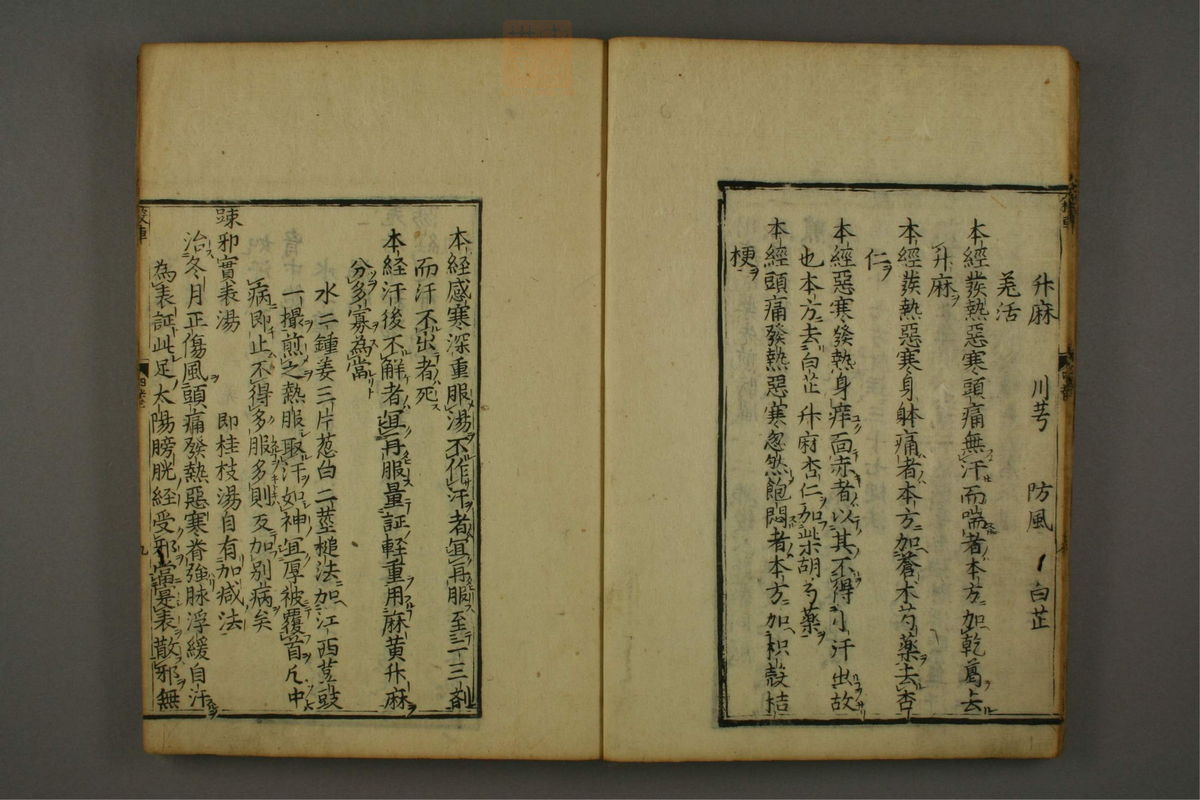 升麻　川芎　防風　白芷
羌活
本經發熱惡寒頭痛無汗而喘者本方加乾葛去
升麻
本經發熱惡寒身躰痛者本方加蒼朮芍藥去杏
仁
本經惡寒發熱身痒面赤者以其不得小汗出故
也本方去白芷升麻杏仁加柴胡芍藥
本經頭痛發熱惡寒忽然飽悶者本方加枳殼桔
梗
本經感寒深重服湯不作汗者宜再服至二三劑
而汗不出者死
本経汗後不解者宜再服量証軽重用麻黄升麻
分多寡為當
水二鍾姜三片葱白二莖槌法加江西荳豉
一撮煎之熱服取汗如神宜厚被覆首凡中
病即止不得多服多則反加別病矣
踈邪實表湯　即桂枝湯自有加减法
治冬月正傷風頭痛發熱惡寒脊強脉浮緩自汗
為表証此足太陽膀胱経受邪當實表散邪無
九